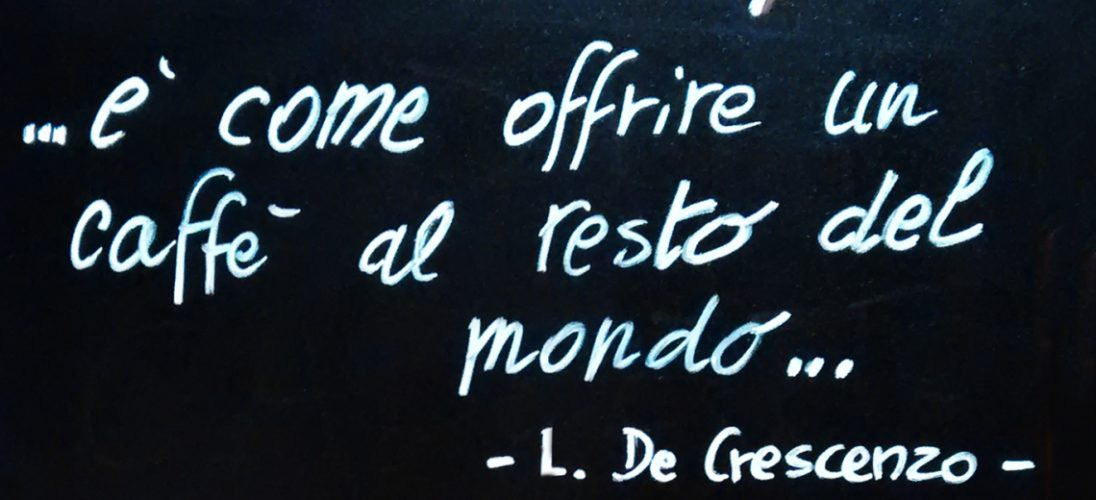 ...e' come offrire un
caffè al resto del
mondo...
- L. De Crescenzo -